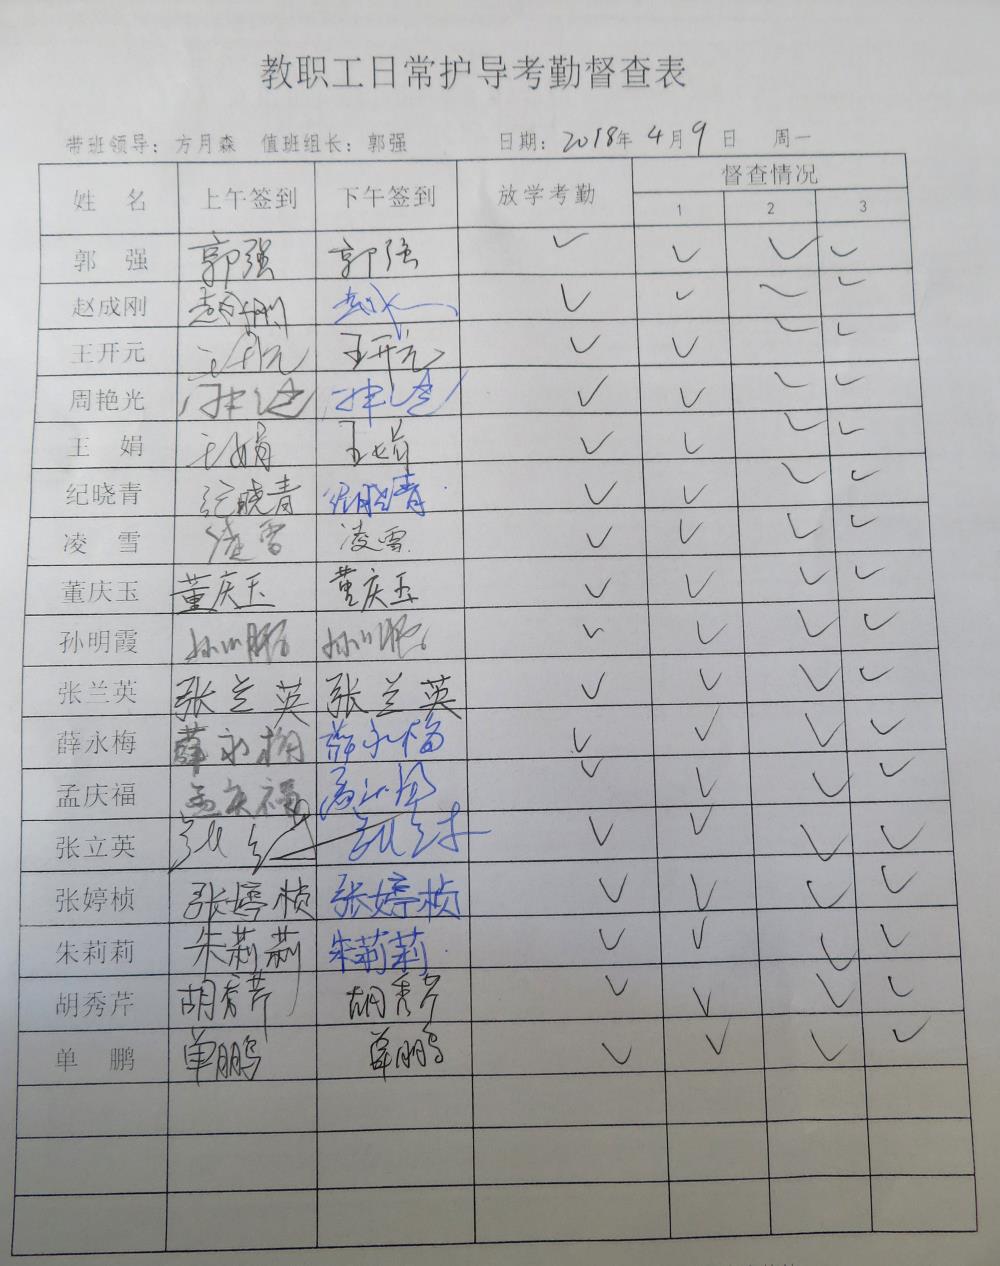 教职工日常护导考勤督查表
带班领导：方月森 值班组长：郭强 日期：2018年4月9日 周一
姓 名 上午签到 下午签到 放学考勤 督查情况
1 2 3
郭 强 郭强 郭强 ✓ ✓ ✓ ✓
赵成刚 赵成刚 ✓ ✓ ✓ ✓
王开元 王开元 王开元 ✓ ✓ ✓ ✓
周艳光 ✓ ✓ ✓ ✓
王 娟 王娟 王娟 ✓ ✓ ✓ ✓
纪晓青 纪晓青 纪晓青 ✓ ✓ ✓ ✓
凌 雪 凌雪 凌雪 ✓ ✓ ✓ ✓
董庆玉 董庆玉 董庆玉 ✓ ✓ ✓ ✓
孙明霞 孙明霞 孙明霞 ✓ ✓ ✓ ✓
张兰英 张兰英 张兰英 ✓ ✓ ✓ ✓
薛永梅 薛永梅 薛永梅 ✓ ✓ ✓ ✓
孟庆福 孟庆福 孟庆福 ✓ ✓ ✓ ✓
张立英 ✓ ✓ ✓ ✓
张婷桢 张婷桢 张婷桢 ✓ ✓ ✓ ✓
朱莉莉 朱莉莉 朱莉莉 ✓ ✓ ✓ ✓
胡秀芹 胡秀芹 胡秀芹 ✓ ✓ ✓ ✓
单 鹏 单鹏 单鹏 ✓ ✓ ✓ ✓